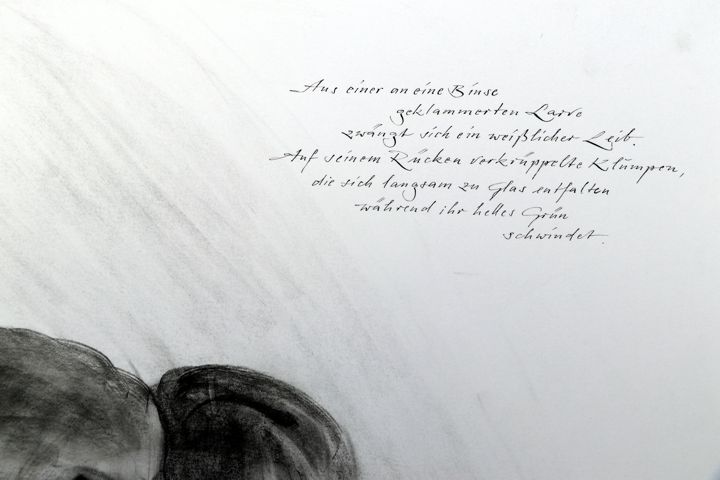 Aus einer an eine Binse
geklammerten Larve
zwängt sich ein weißlicher Leib.
Auf seinem Rücken verkrüppelte Klumpen,
die sich langsam zu Glas entfalten
während ihr helles Grün
schwindet.